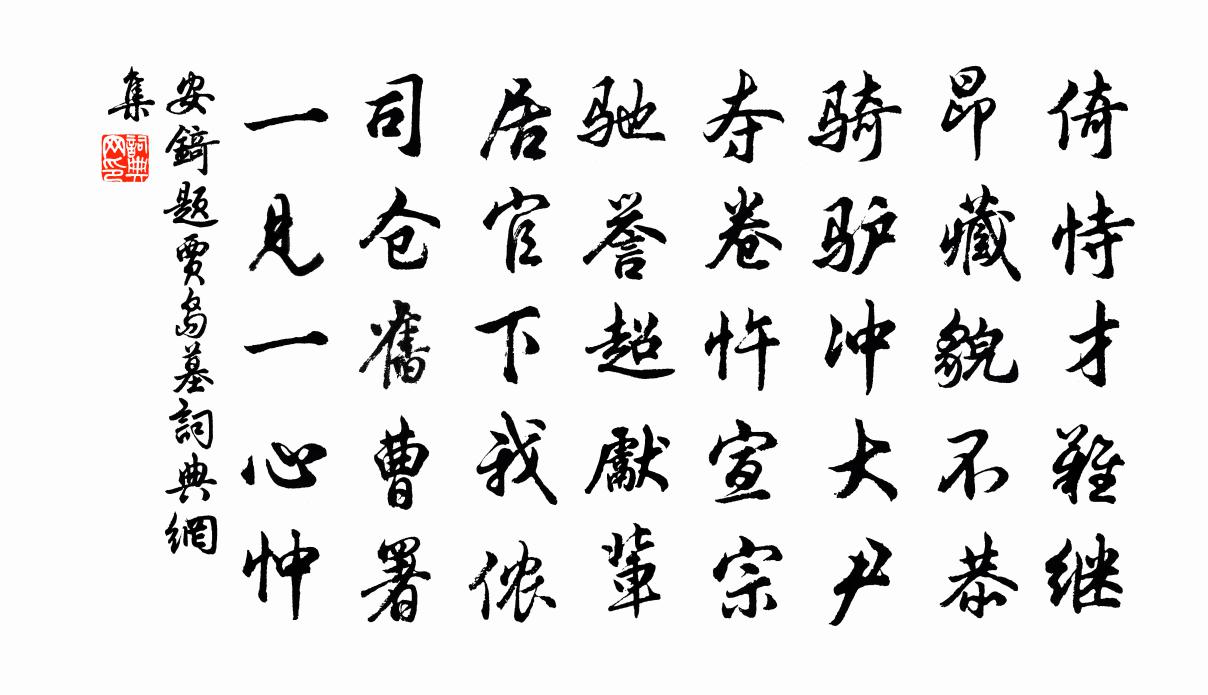 倚恃才難继
昂藏貌不恭
骑驴冲大尹
夺卷忤宣宗
驰誉超獻輩
居官下我侬
司仓舊曹署
一见一心忡
安錡题贾岛墓詞典網
集
詞典
网印